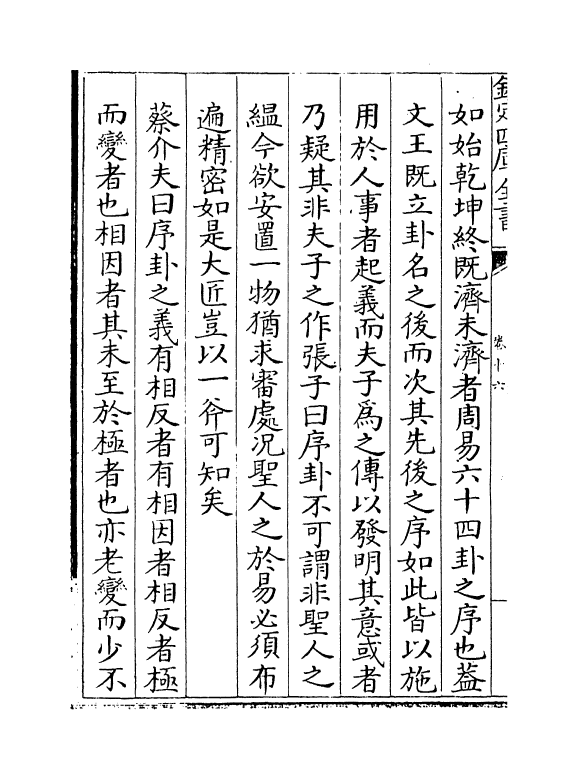 欽定四庫全書
卷十六
如始乾坤終既濟未濟者周易六十四卦之序也葢
文王既立卦名之後而次其先後之序如此皆以施
用於人事者起義而夫子為之傳以發明其意或者
乃疑其非夫子之作張子曰序卦不可謂非聖人之
緼今欲安置一物猶求審處況聖人之於易必須布
遍精密如是大匠豈以一斧可知矣
蔡介夫曰序卦之義有相反者有相因者相反者極
而變者也相因者其未至於極者也亦老變而少不